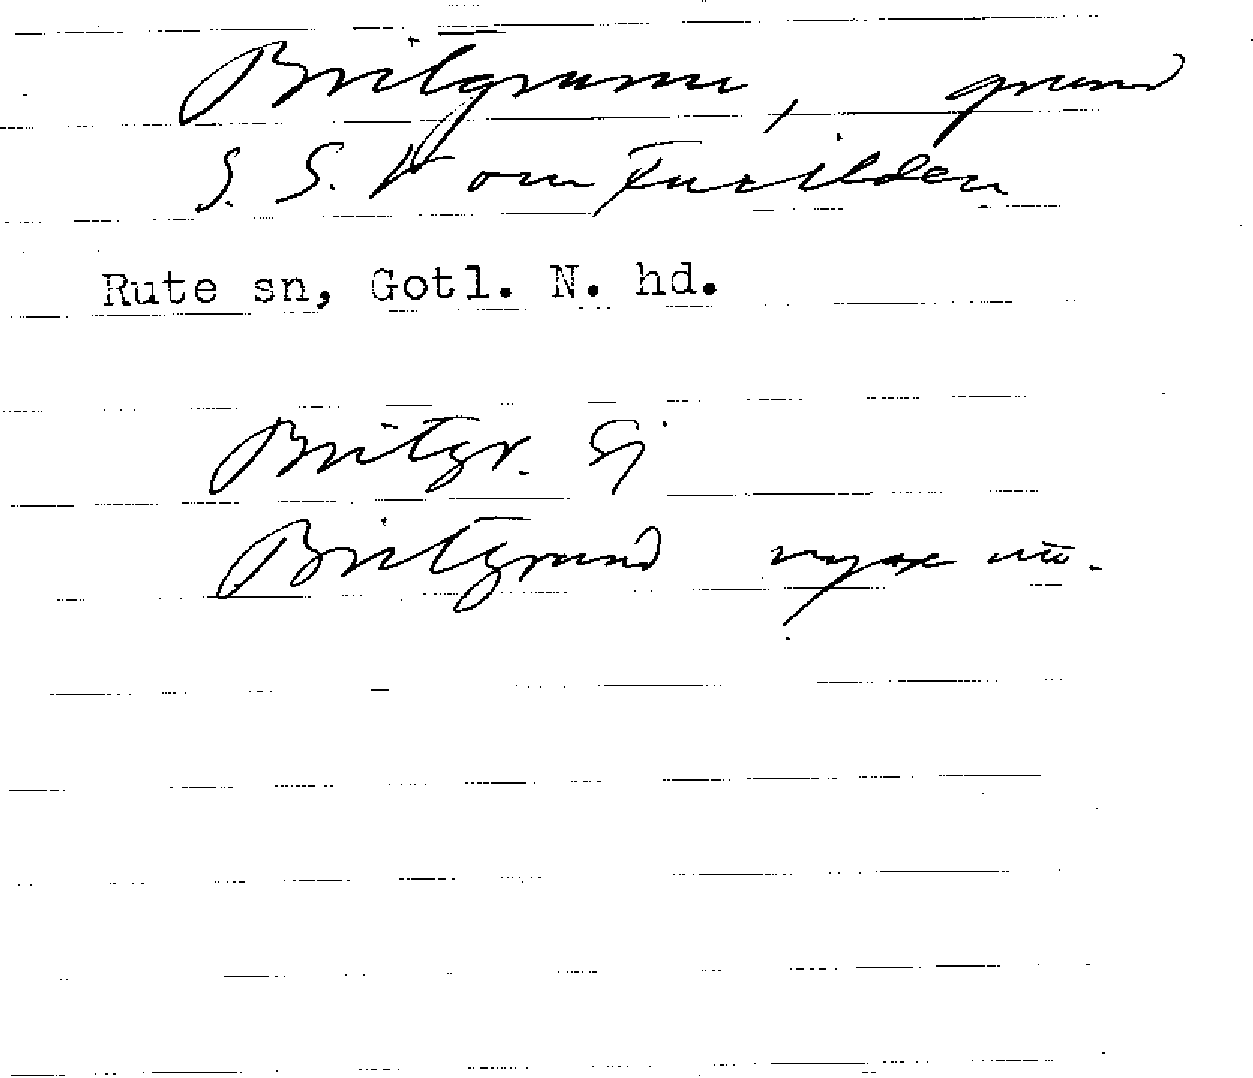 Britgrunn, grund
S. S. V om Furilden
Rute sn, Gotl. N. hd.
Britgr. Sj
Britgrund